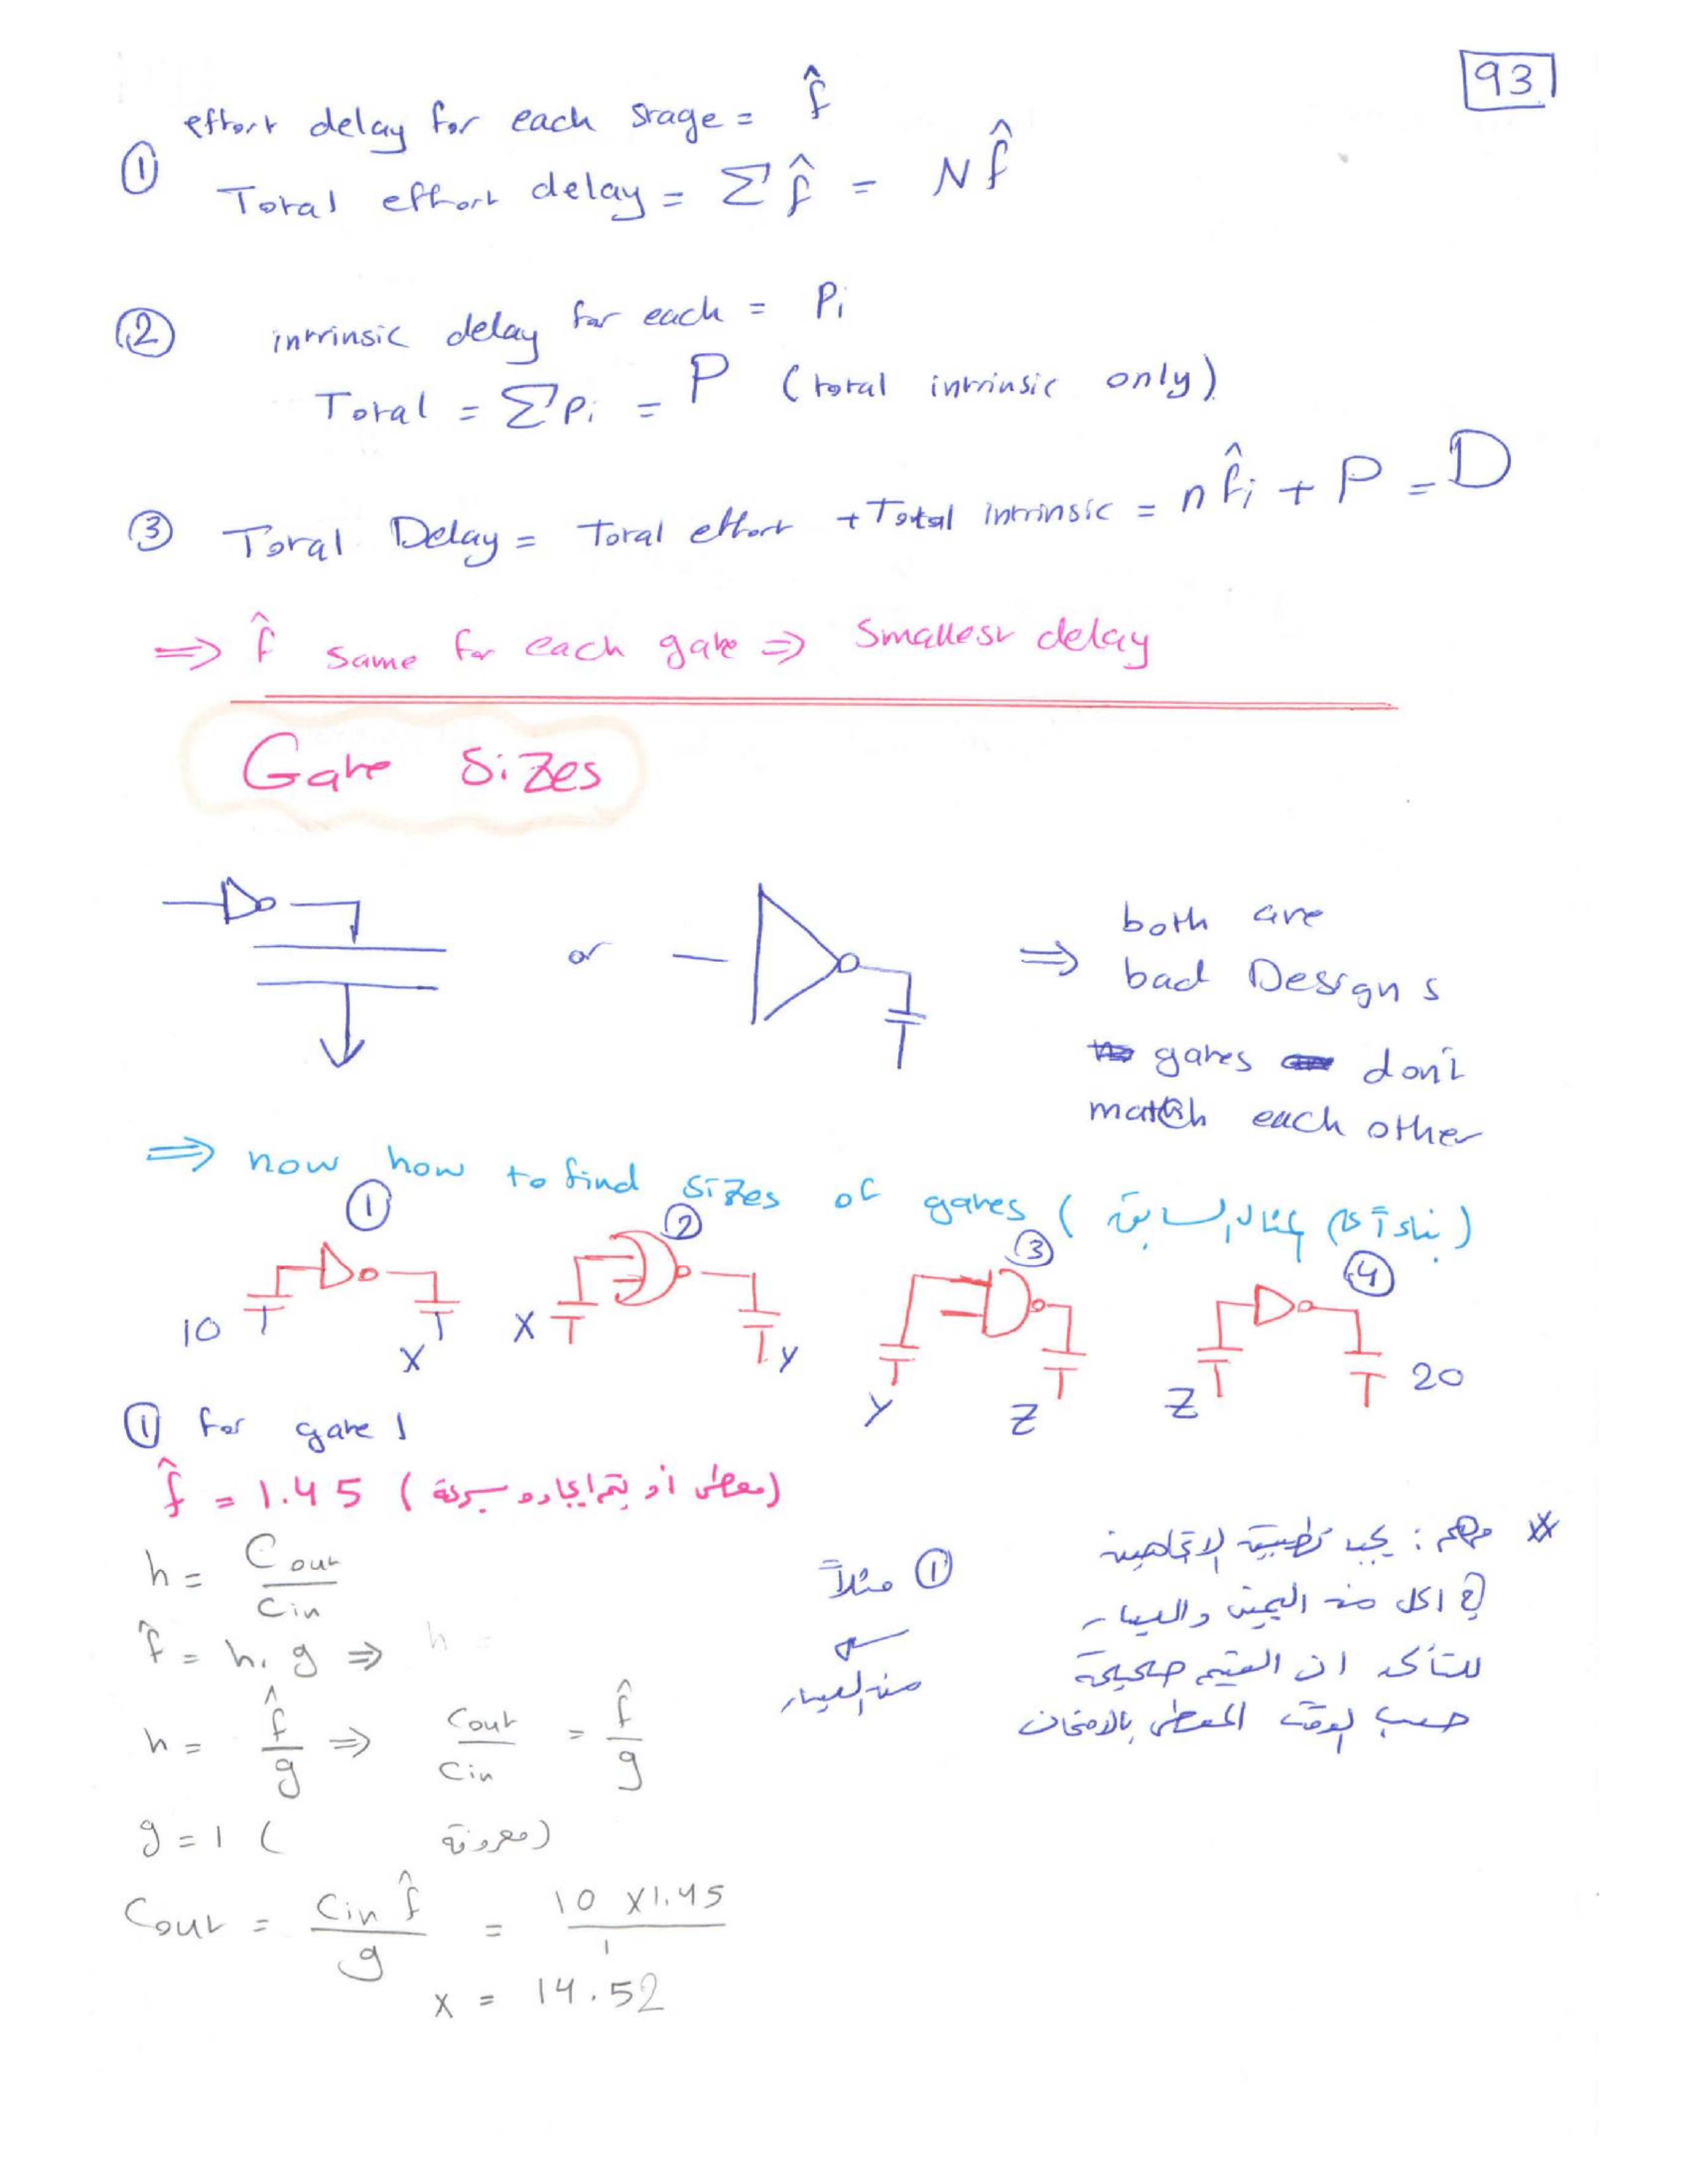 93
effort delay for each stage = f̂
① Total effort delay = Σ f̂ = N f̂
② intrinsic delay for each = Pi
Total = Σ Pi = P (total intrinsic only)
③ Total Delay = Total effort + Total intrinsic = n f̂i + P = D
⇒ f̂ same for each gate ⇒ Smallest delay
Gate Sizes
or
⇒ both are
bad Designs
gates don't
match each other
⇒ now how to find sizes of gates (بناءً على المثال السابق)
① ② ③ ④
10 X X Y Y Z Z 20
① for gate 1
f̂ = 1.45 (معطى أو يتم إيجاده بسرعة)
h = Cout / Cin
f̂ = h . g ⇒ h =
h = f̂ / g ⇒ Cout / Cin = f̂ / g
g = 1 ( معروفة)
Cout = Cin f̂ / g = 10 x1.45 / 1
x = 14.52
① مثلاً
من اليسار
* مهم : يجب تطبيق الاتجاهين
في الحل من اليمين واليسار
للتأكد ان القيم صحيحة
حسب الوقت المعطى بالامتحان